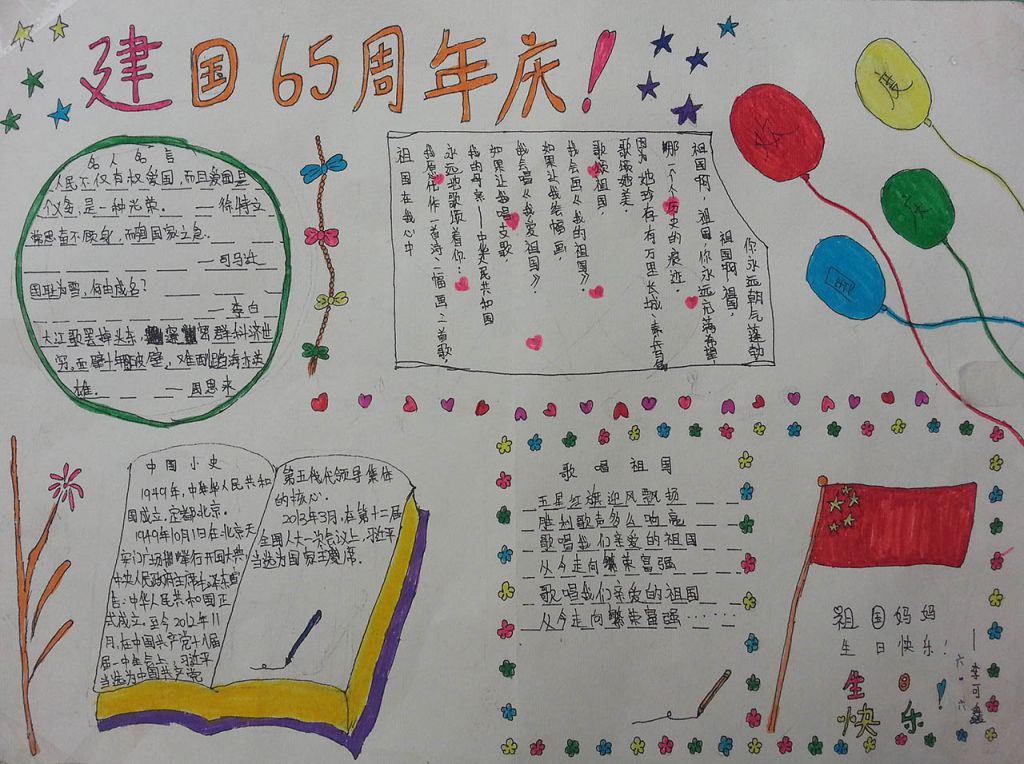 建国65周年庆!
名人名言
人民不仅有权爱国,而且爱国是
个义务,是一种光荣.
—徐特立
常思奋不顾身,而国家之急.
—司马迁
国耻为雪,何由成名?
—李白
大江歌罢掉头东,
群科济世
穷.面壁十年
破壁,难
蹈海亦英
雄. —周恩来
你永远朝气蓬勃
祖国啊,祖国,
祖国啊,祖国,你永远充满希望,
哪一个个历史的痕迹.
她珍存有万里长城、
歌颂她美.
歌颂祖国,
我会画《我的祖国》.
如果让我绘幅画,
我会唱《我爱祖国》.
如果让我唱支歌,
我的母亲—中华人民共和国
永远地歌颂着你:
作一首诗、一幅画、一首歌,
祖国在我心中
庆
国
中国小史
1949年,中华人民共和
国成立,定都北京.
1949年10月1日在北京天
安门广场举行开国大典,
中央人民政府主席毛泽东宣
告:中华人民共和国正
式成立.至今2012年11
月,在中国共产党十八届
一中全会上,习近平
当选为中国共产党
第五代代领导集体
的核心.
2013年3月,在第十二届
全国人大一次会议上,习近平
当选为国家主席.
歌唱祖国
五星红旗迎风飘扬
胜利歌声多么响亮
歌唱我们亲爱的祖国
从今走向繁荣富强
歌唱我们亲爱的祖国
从今走向繁荣富强······
祖国妈妈
生日快乐!
—李可鑫
六·六
生日
快乐!